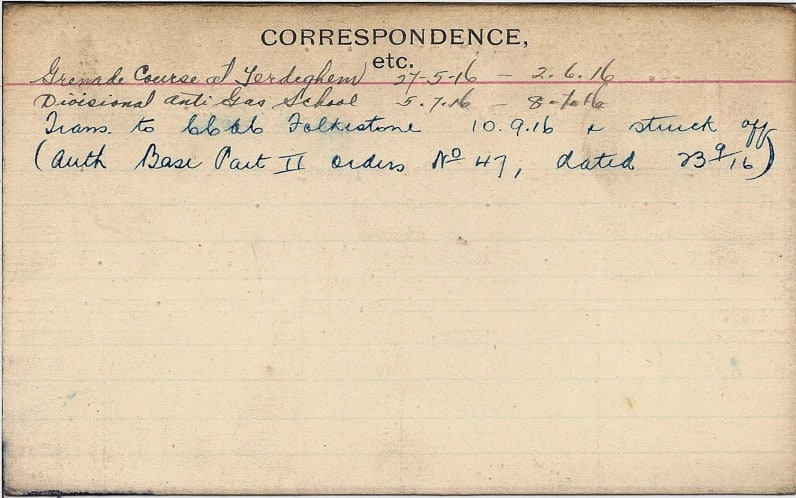 CORRESPONDENCE,
etc.
Grenade Course at Terdeghem 27-5-16 - 2.6.16
Divisional anti Gas School 5.7.16 - 8-7-16
Trans. to CCAC Folkestone 10.9.16 & struck off
(Auth Base Part II orders No 47, dated 23 9/16)